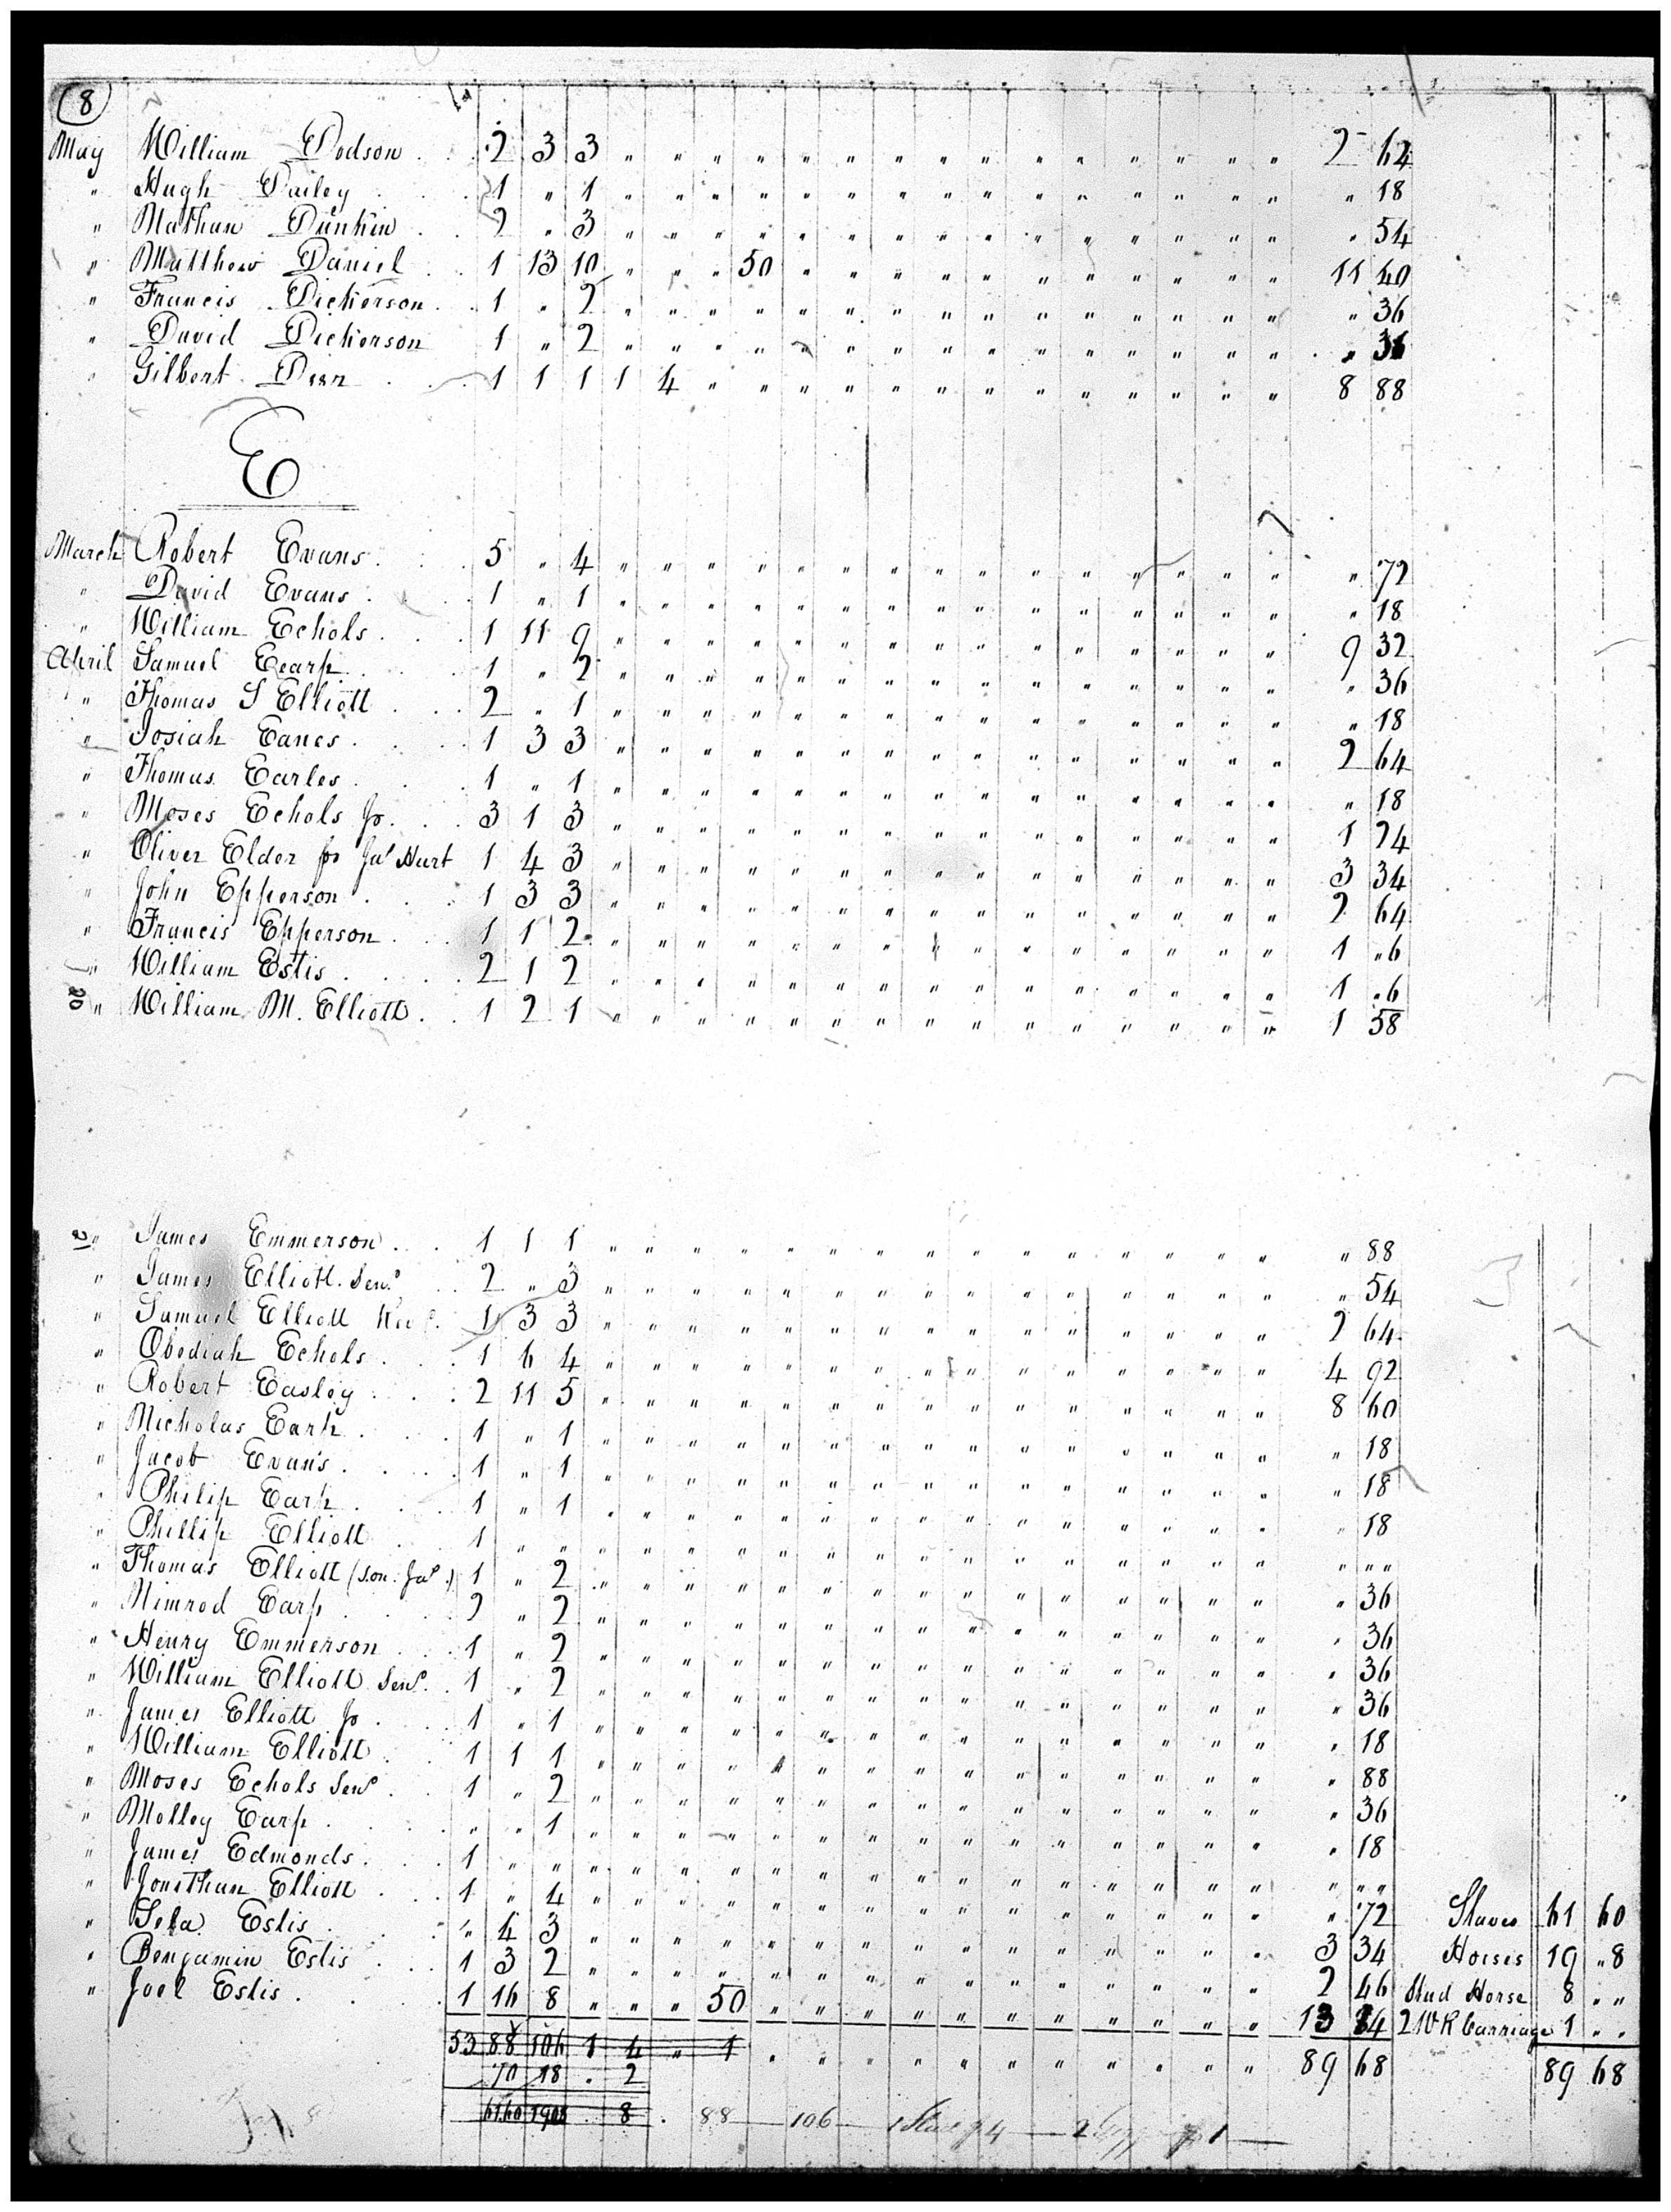 8
May William Dodson 2 3 3 " " " " " " " " " " " " " " " 2 64
" Hugh Dailey 1 " 1 " " " " " " " " " " " " " " " " 18
" Nathan Dunkin 2 " 3 " " " " " " " " " " " " " " " " 54
" Matthew Daniel 1 13 10 " " " 50 " " " " " " " " " " " 11 40
" Francis Dickerson 1 " 2 " " " " " " " " " " " " " " " " 36
" David Dickerson 1 " 2 " " " " " " " " " " " " " " " " 36
" Gilbert 1 1 1 1 4 " " " " " " " " " " " " " 8 88
E
March Robert Evans 5 " 4 " " " " " " " " " " " " " " " " 72
" David Evans 1 " 1 " " " " " " " " " " " " " " " " 18
" William Echols 1 11 9 " " " " " " " " " " " " " " " 9 32
April Samuel Eearp 1 " 2 " " " " " " " " " " " " " " " " 36
" Thomas S Elliott 2 " 1 " " " " " " " " " " " " " " " " 18
" Josiah Eanes 1 3 3 " " " " " " " " " " " " " " " 2 64
" Thomas Earles 1 " 1 " " " " " " " " " " " " " " " " 18
" Moses Echols Jr. 3 1 3 " " " " " " " " " " " " " " " 1 24
" Oliver Elder for Jas Hurt 1 4 3 " " " " " " " " " " " " " " " 3 34
" John Epperson 1 3 3 " " " " " " " " " " " " " " " 2 64
" Francis Epperson 1 1 2 " " " " " " " " " " " " " " " 1 "6
" William Estis 2 1 2 " " " " " " " " " " " " " " " 1 "6
20 " William M. Elliott 1 2 1 " " " " " " " " " " " " " " " 1 58
21 " James Emmerson 1 1 1 " " " " " " " " " " " " " " " " 88
" James Elliott Senr 2 " 3 " " " " " " " " " " " " " " " " 54
" Samuel Elliott 1 3 3 " " " " " " " " " " " " " " " 2 64
" Obediah Echols 1 6 4 " " " " " " " " " " " " " " " 4 92
" Robert Easley 2 11 5 " " " " " " " " " " " " " " " 8 60
" Nicholas Earp 1 " 1 " " " " " " " " " " " " " " " " 18
" Jacob Evans 1 " 1 " " " " " " " " " " " " " " " " 18
" Philip Earp 1 " 1 " " " " " " " " " " " " " " " " 18
" Phillip Elliott 1 " " " " " " " " " " " " " " " " " " " "
" Thomas Elliott (son Jas.) 1 " 2 " " " " " " " " " " " " " " " " 36
" Nimrod Earp 2 " 2 " " " " " " " " " " " " " " " " 36
" Henry Emmerson 1 " 2 " " " " " " " " " " " " " " " " 36
" William Elliott Senr. 1 " 2 " " " " " " " " " " " " " " " " 36
" James Elliott Jr 1 " 1 " " " " " " " " " " " " " " " " 18
" William Elliott 1 1 1 " " " " " " " " " " " " " " " " 88
" Moses Echols Senr 1 " 2 " " " " " " " " " " " " " " " " 36
" Molley Earp " " 1 " " " " " " " " " " " " " " " " 18
" James Edmonds 1 " " " " " " " " " " " " " " " " " " " "
" Jonathan Elliott 1 " 4 " " " " " " " " " " " " " " " " 72 Slaves 61 60
" Estis " 4 3 " " " " " " " " " " " " " " " 3 34 Horses 19 "8
" Benjamin Estis 1 3 2 " " " " " " " " " " " " " " " 2 46 Stud Horse 8 " "
" Joel Estis 1 16 8 " " " 50 " " " " " " " " " " " 13 84 2 W R Carriage 1 " "
53 88 106 1 4 " 1 " " " " " " " " " " " 89 68 89 68
70 18 . 2
61.60 1908 . 8 . 88 106 4 2 1